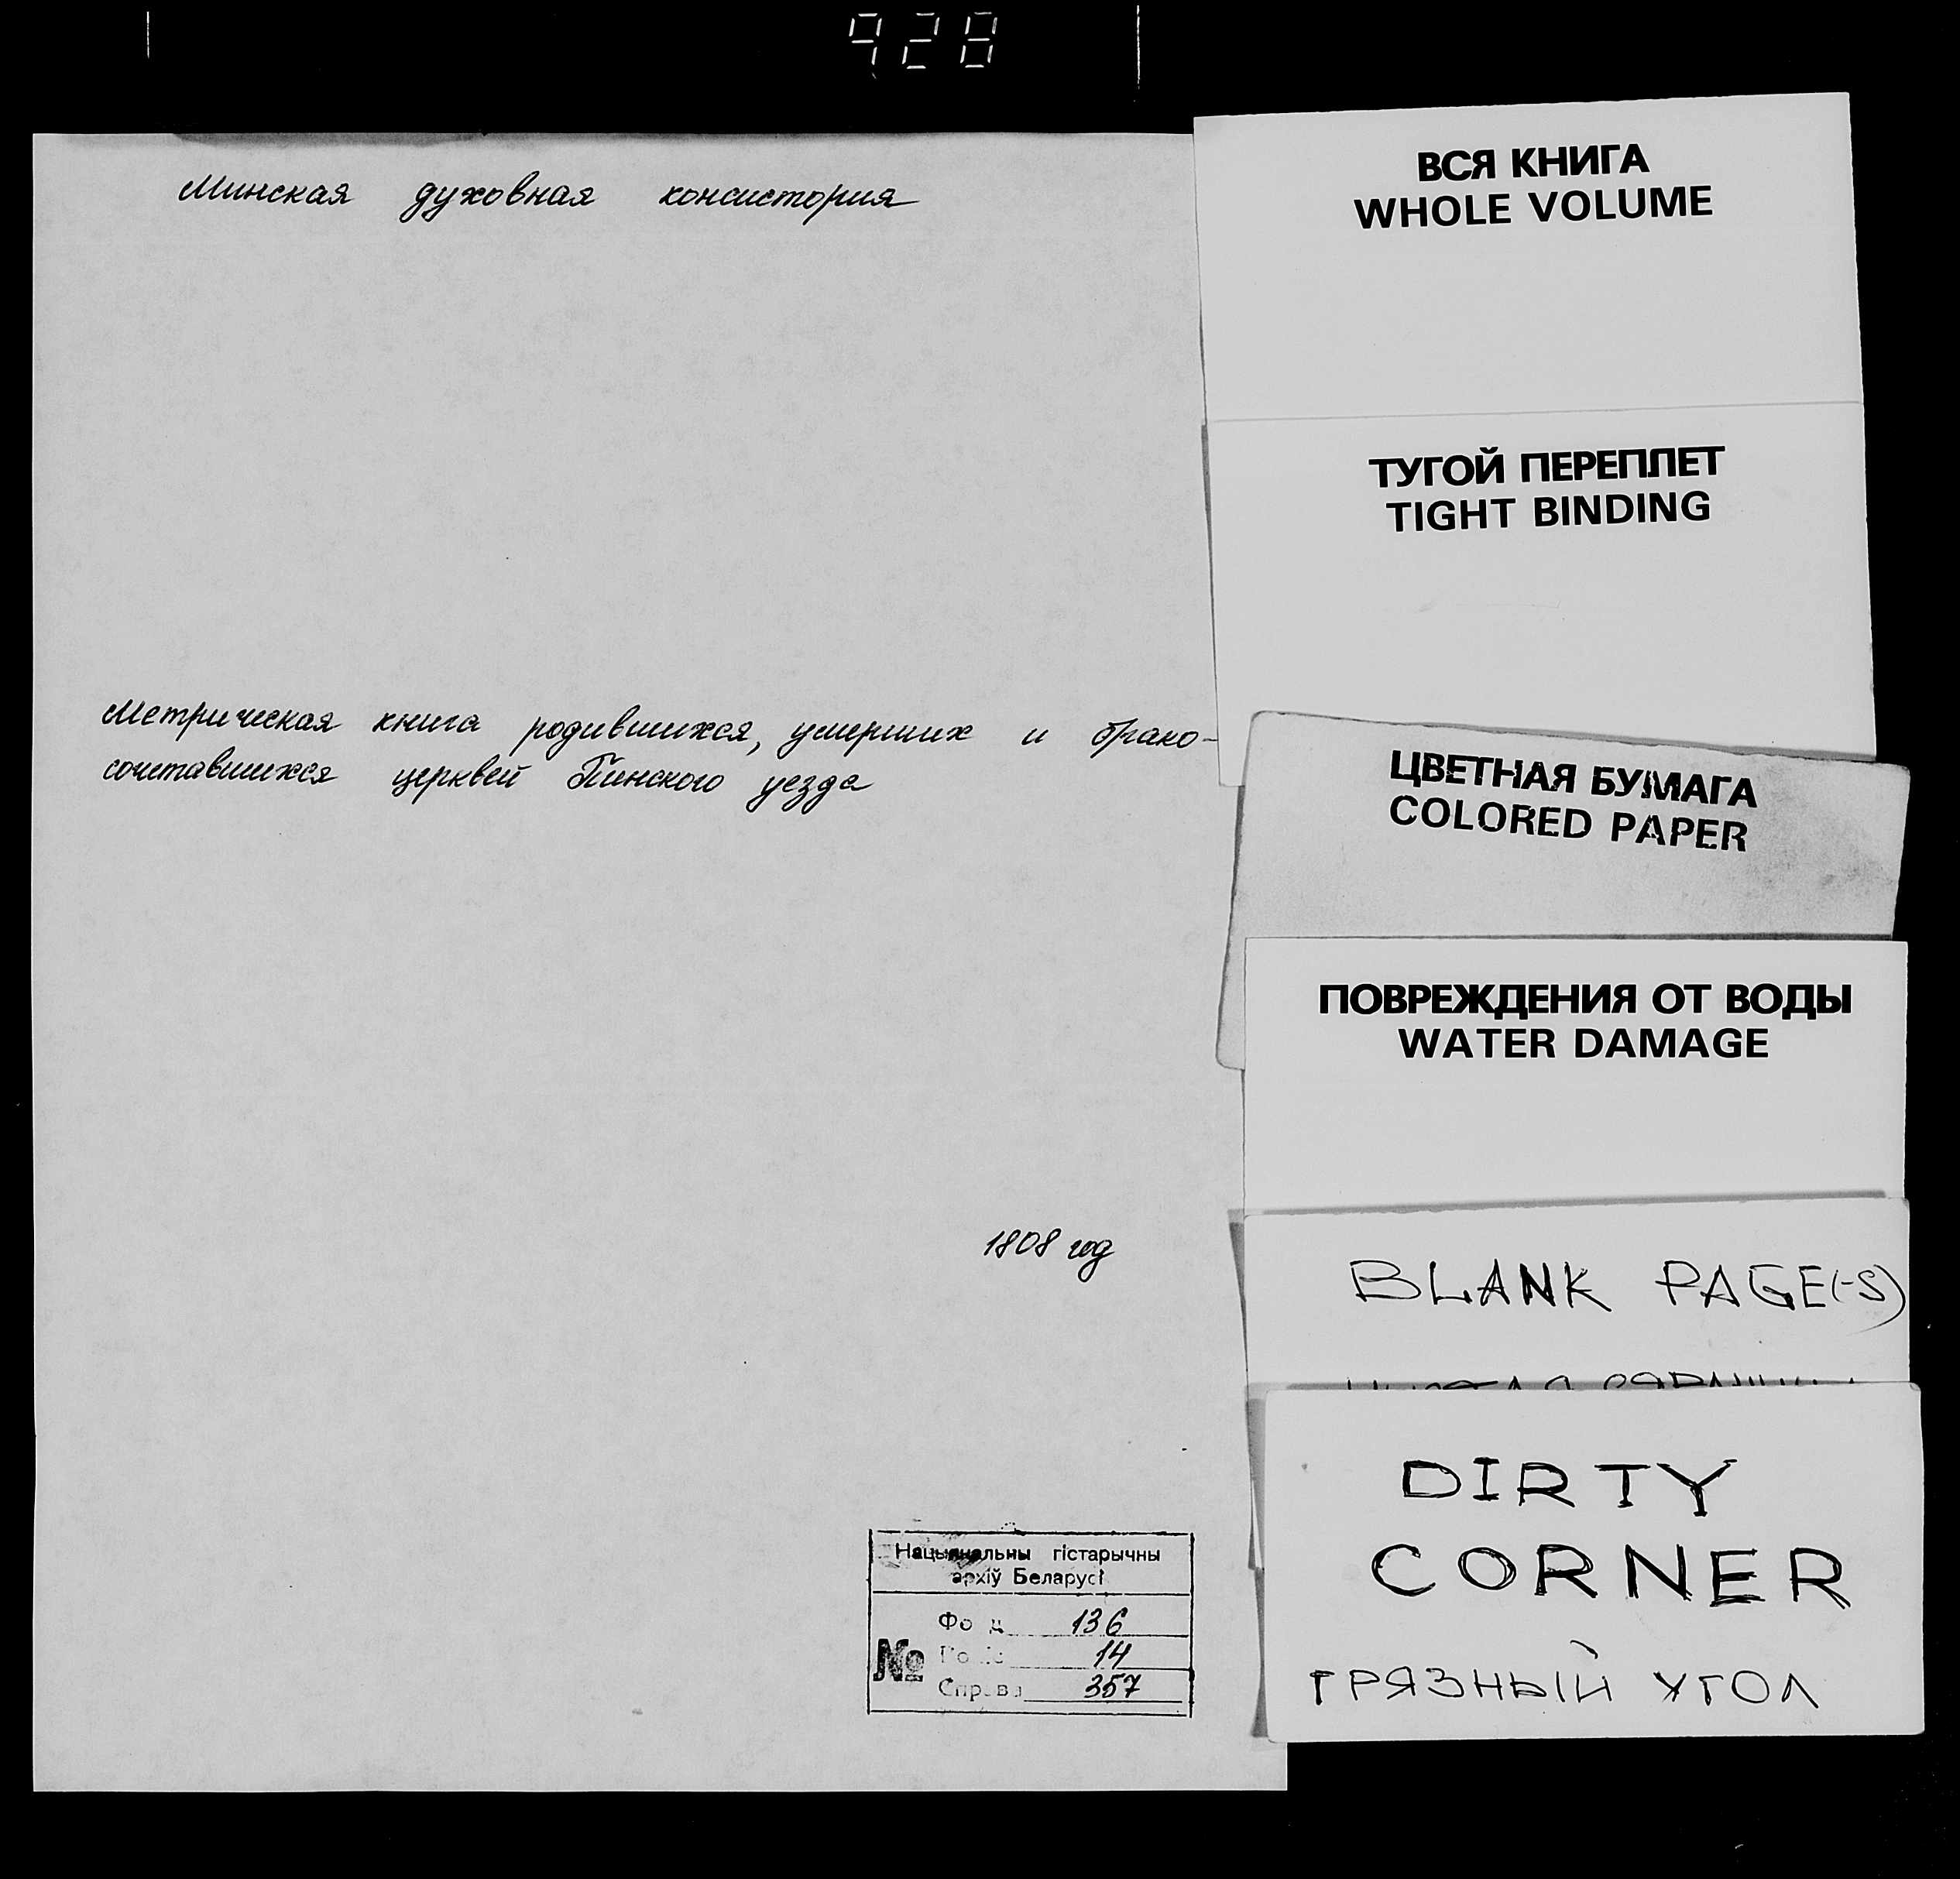 928
Минская духовная консистория
Метрическая книга родившихся, умерших и брако-
сочетавшихся церквей Пинского уезда
1808 год
Нацыянальны гістарычны
архіў Беларусі
Фонд 136
№
14
Справа 357
ВСЯ КНИГА
WHOLE VOLUME
ТУГОЙ ПЕРЕПЛЕТ
TIGHT BINDING
ЦВЕТНАЯ БУМАГА
COLORED PAPER
ПОВРЕЖДЕНИЯ ОТ ВОДЫ
WATER DAMAGE
BLANK PAGE(-S)
DIRTY
CORNER
ГРЯЗНЫЙ УГОЛ